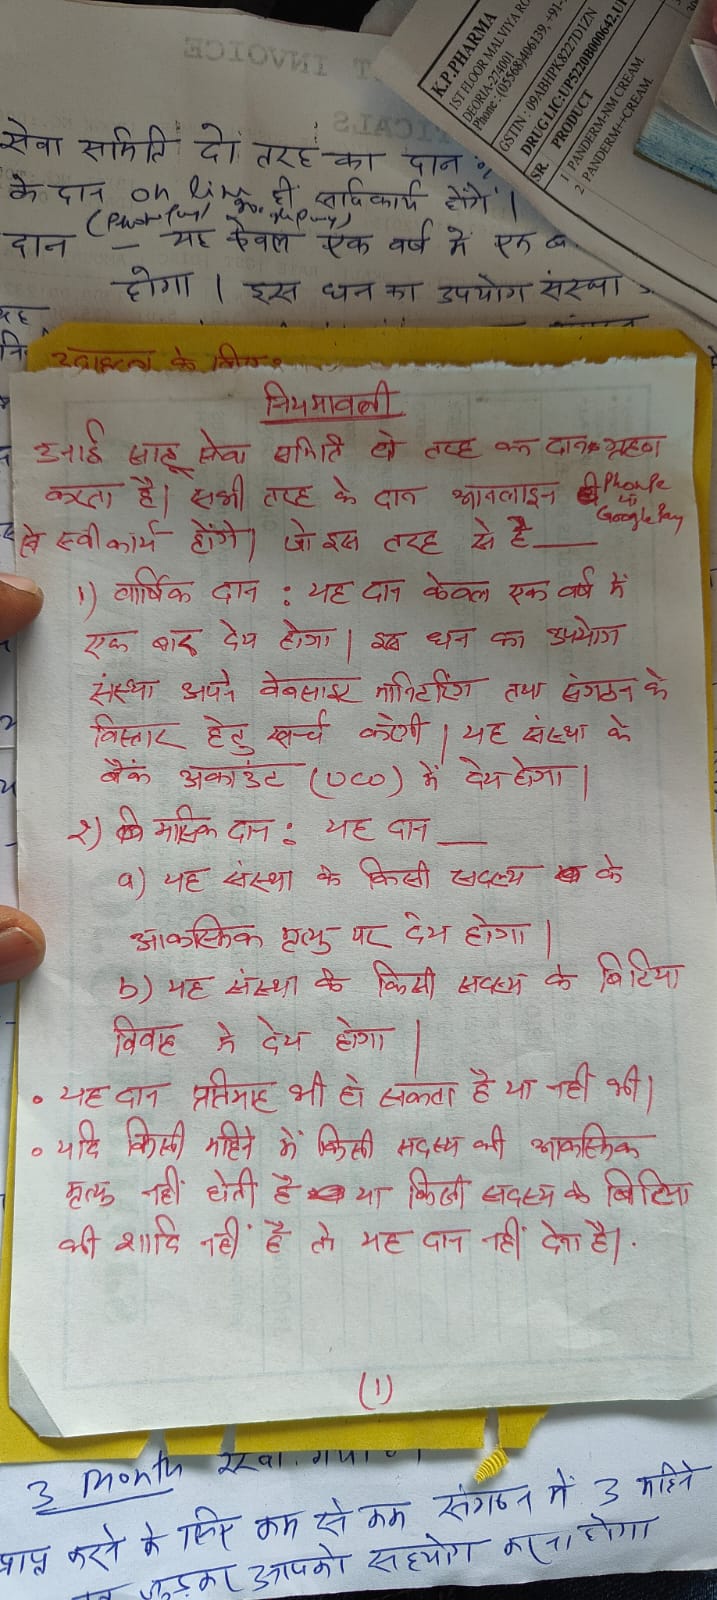 K.P.PHARMA
1ST FLOOR MALVIYA RO
DEORIA-274001
Phone : (05568)406139, +91-
GSTIN : 09ABHPK8227D1ZN
DRUG LIC:UP5220B000642,U
SR. PRODUCT
1 PANDERM-NM CREAM
2 PANDERM++CREAM.
INVOICE
सेवा समिति दो तरह का दान
के दान on line ही स्वीकार्य होंगे।
दान — यह केवल एक वर्ष में एक ब
होगा। इस धन का उपयोग संस्था
उदाहरण के लिए:
नियमावली
साहू सेवा समिति दो तरह का दान ग्रहण
करता है। सभी तरह के दान आनलाइन Phonpe या Google Pay
से स्वीकार्य होंगे। जो इस तरह से है —
1) वार्षिक दान : यह दान केवल एक वर्ष में
एक बार देय होगा। इस धन का उपयोग
संस्था अपने वेबसाइट मॉनिटरिंग तथा संगठन के
विस्तार हेतु खर्च करेगी। यह संस्था के
बैंक अकाउंट (UCO) में देय होगा।
2) मासिक दान : यह दान —
a) यह संस्था के किसी सदस्य के
आकस्मिक मृत्यु पर देय होगा।
b) यह संस्था के किसी सदस्य के बिटिया
विवाह में देय होगा।
• यह दान प्रतिमाह भी हो सकता है या नहीं भी।
• यदि किसी महिने में किसी सदस्य की आकस्मिक
मृत्यु नहीं होती है या किसी सदस्य के बिटिया
की शादि नहीं है तो यह दान नहीं देना है।
(1)
3 month रखा गया
प्राप्त करने के लिए कम से कम संगठन में 3 महिने
जुड़कर आपको सहयोग करना होगा